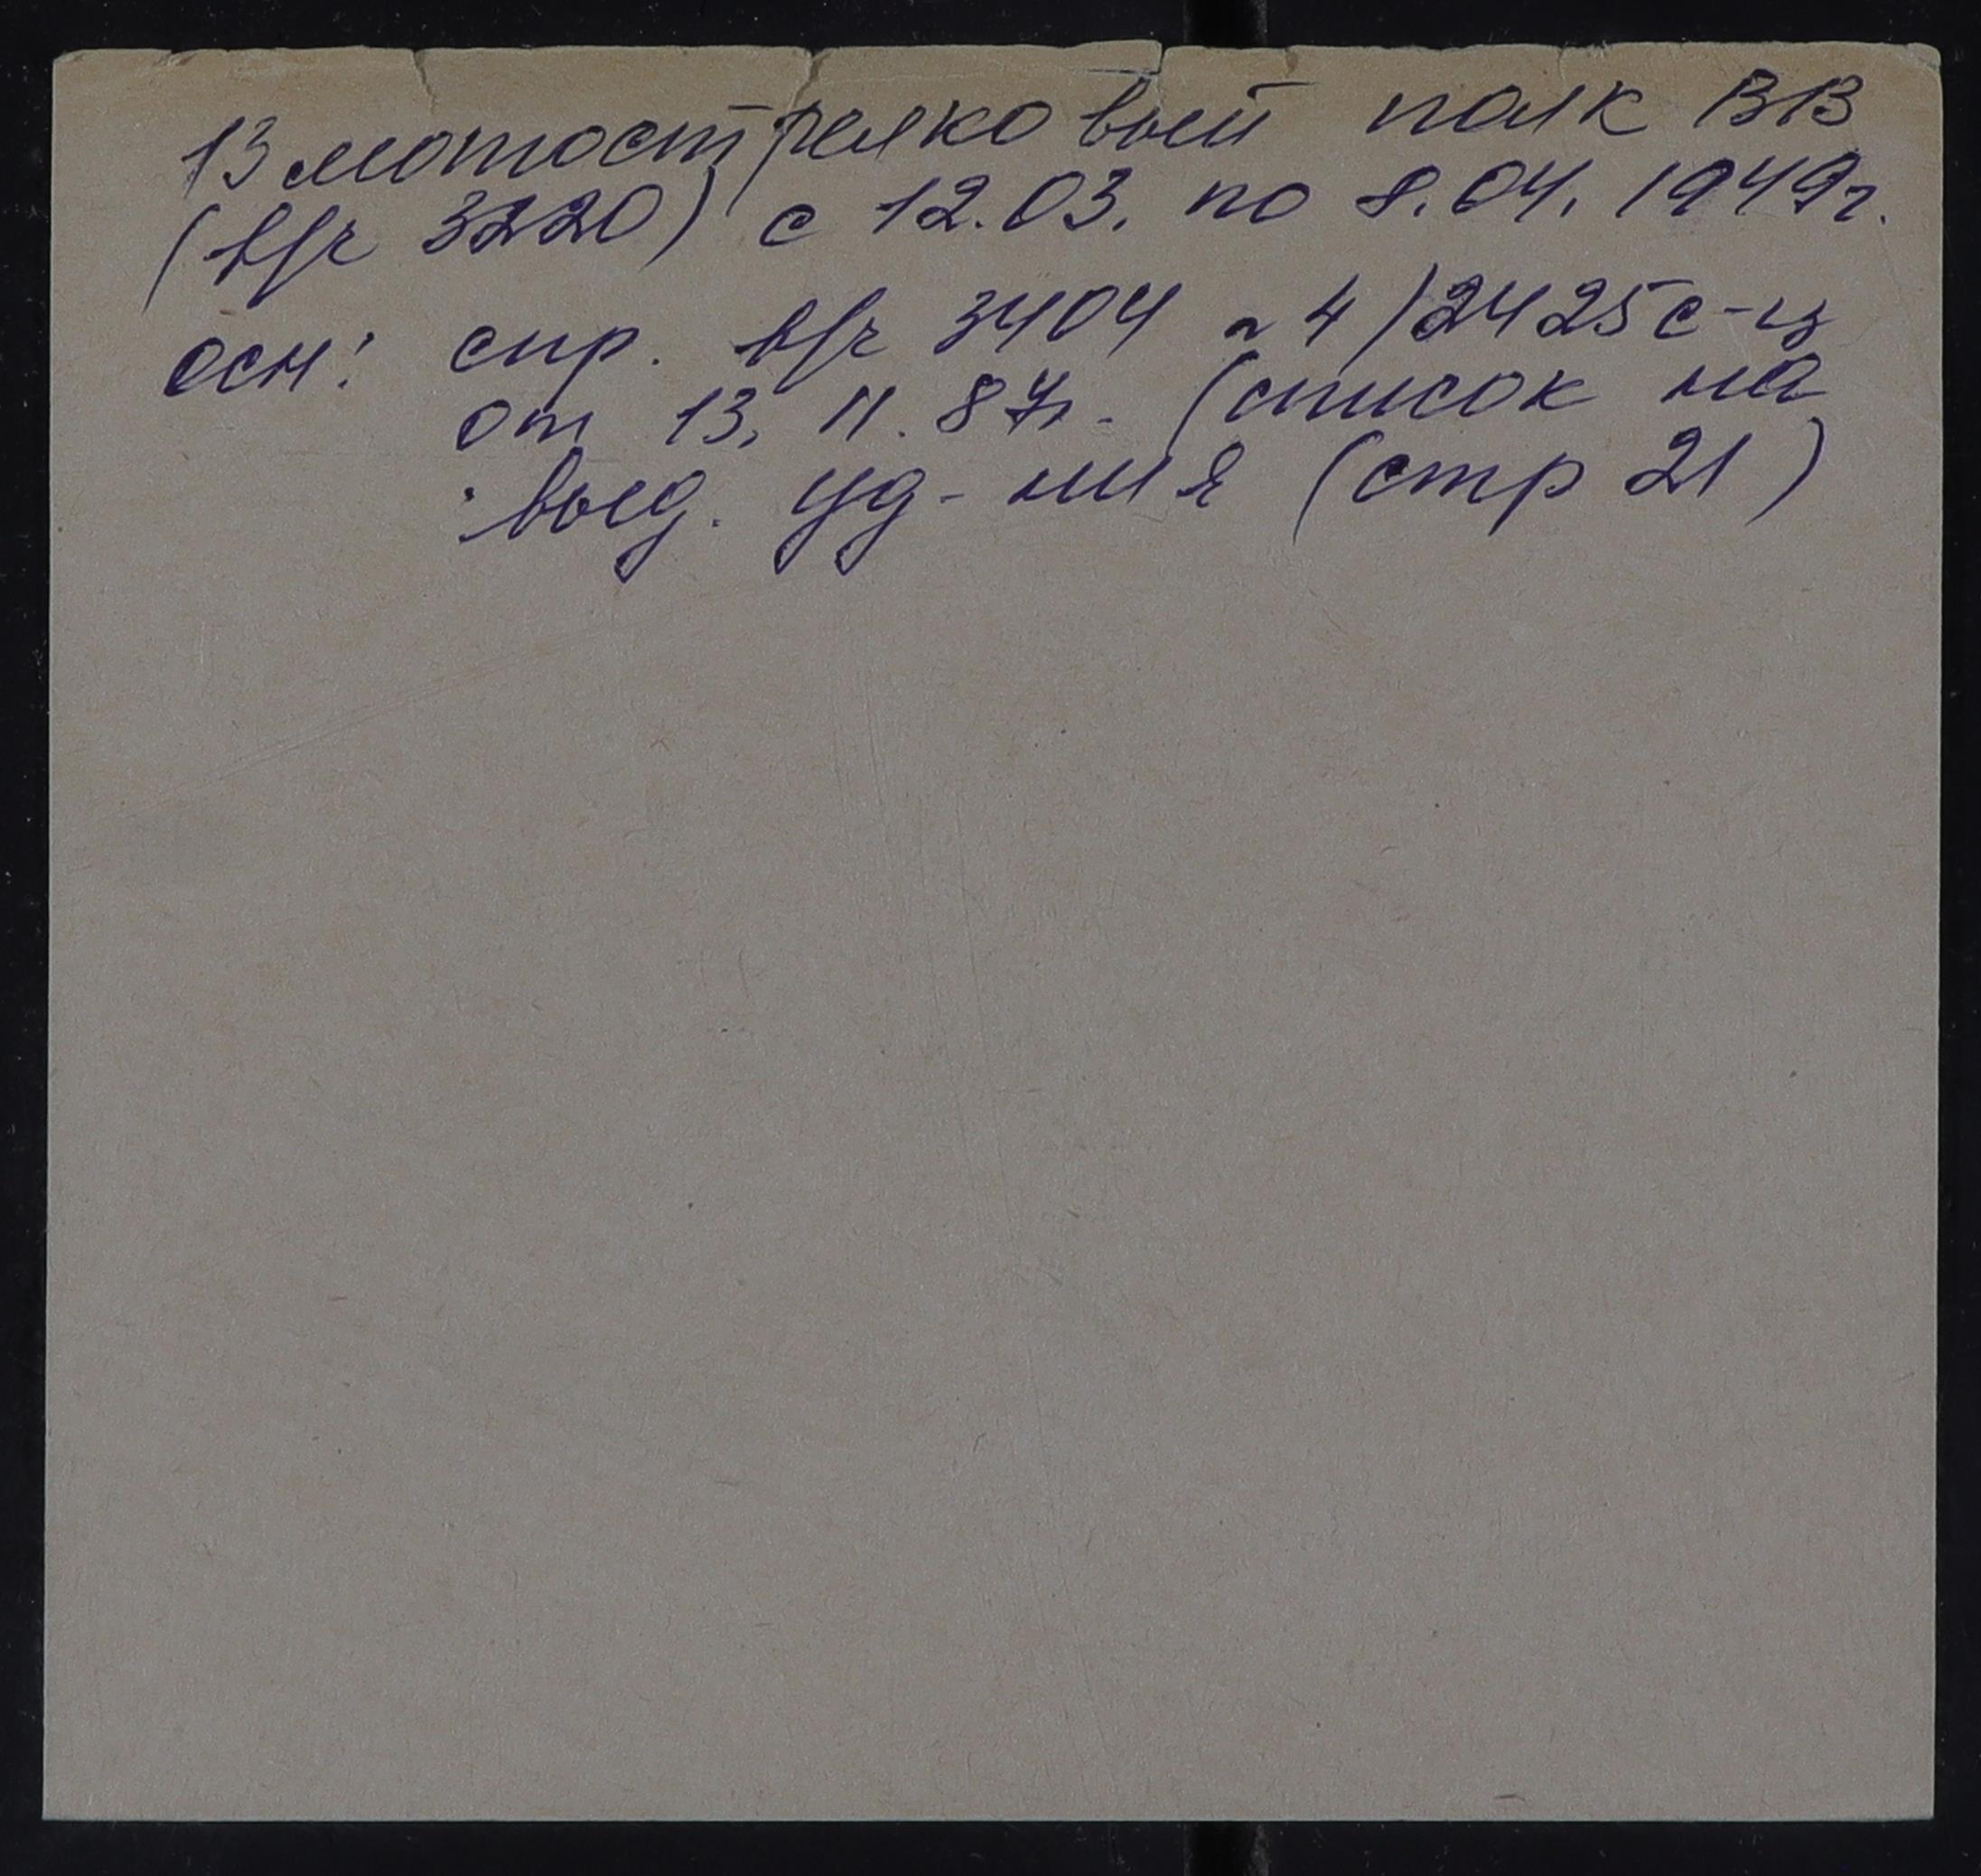 13 мотострелковый полк ВВ
(в/ч 3220) с 12.03. по 8.04.1949г.
осн: спр. в/ч 3404 н 4/2425с-ц
от 13.11.87г. (список на
выд. уд-ния (стр 21)